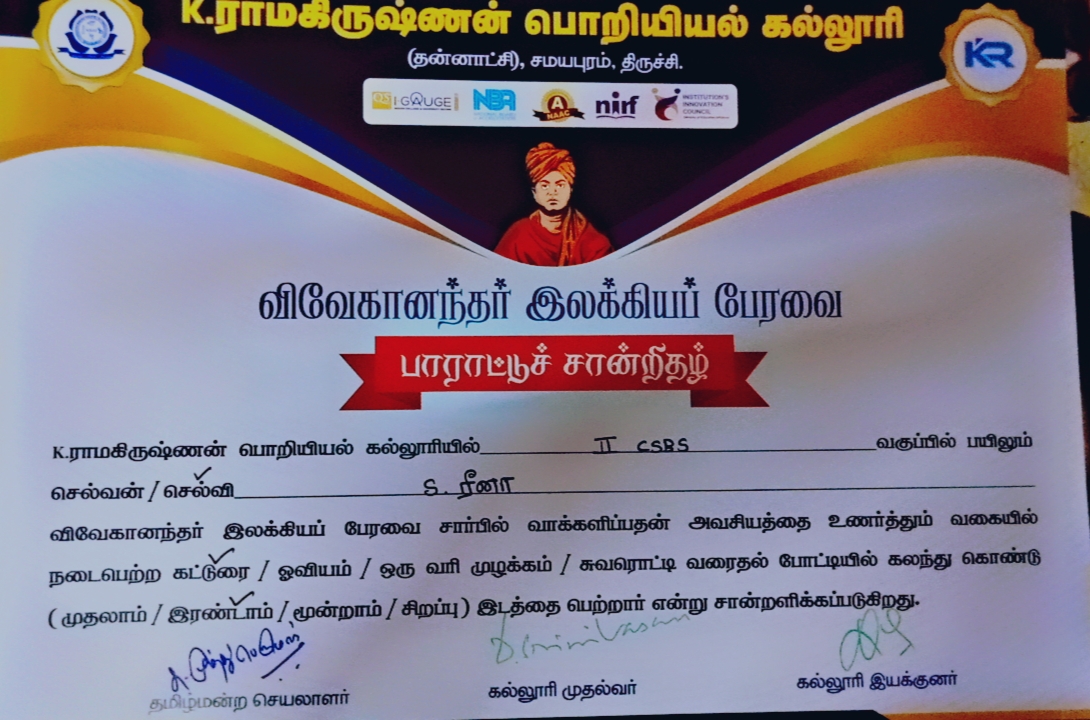 K.ராமகிருஷ்ணன் பொறியியல் கல்லூரி
(தன்னாட்சி), சமயபுரம், திருச்சி.
I GAUGE NBA A NAAC nirf INSTITUTION'S INNOVATION COUNCIL
KR
விவேகானந்தர் இலக்கியப் பேரவை
பாராட்டுச் சான்றிதழ்
K.ராமகிருஷ்ணன் பொறியியல் கல்லூரியில் II CSBS வகுப்பில் பயிலும்
செல்வன் / செல்வி S. ரீனா
விவேகானந்தர் இலக்கியப் பேரவை சார்பில் வாக்களிப்பதன் அவசியத்தை உணர்த்தும் வகையில்
நடைபெற்ற கட்டுரை / ஓவியம் / ஒரு வரி முழக்கம் / சுவரொட்டி வரைதல் போட்டியில் கலந்து கொண்டு
( முதலாம் / இரண்டாம் / மூன்றாம் / சிறப்பு ) இடத்தை பெற்றார் என்று சான்றளிக்கப்படுகிறது.
தமிழ்மன்ற செயலாளர் கல்லூரி முதல்வர் கல்லூரி இயக்குனர்